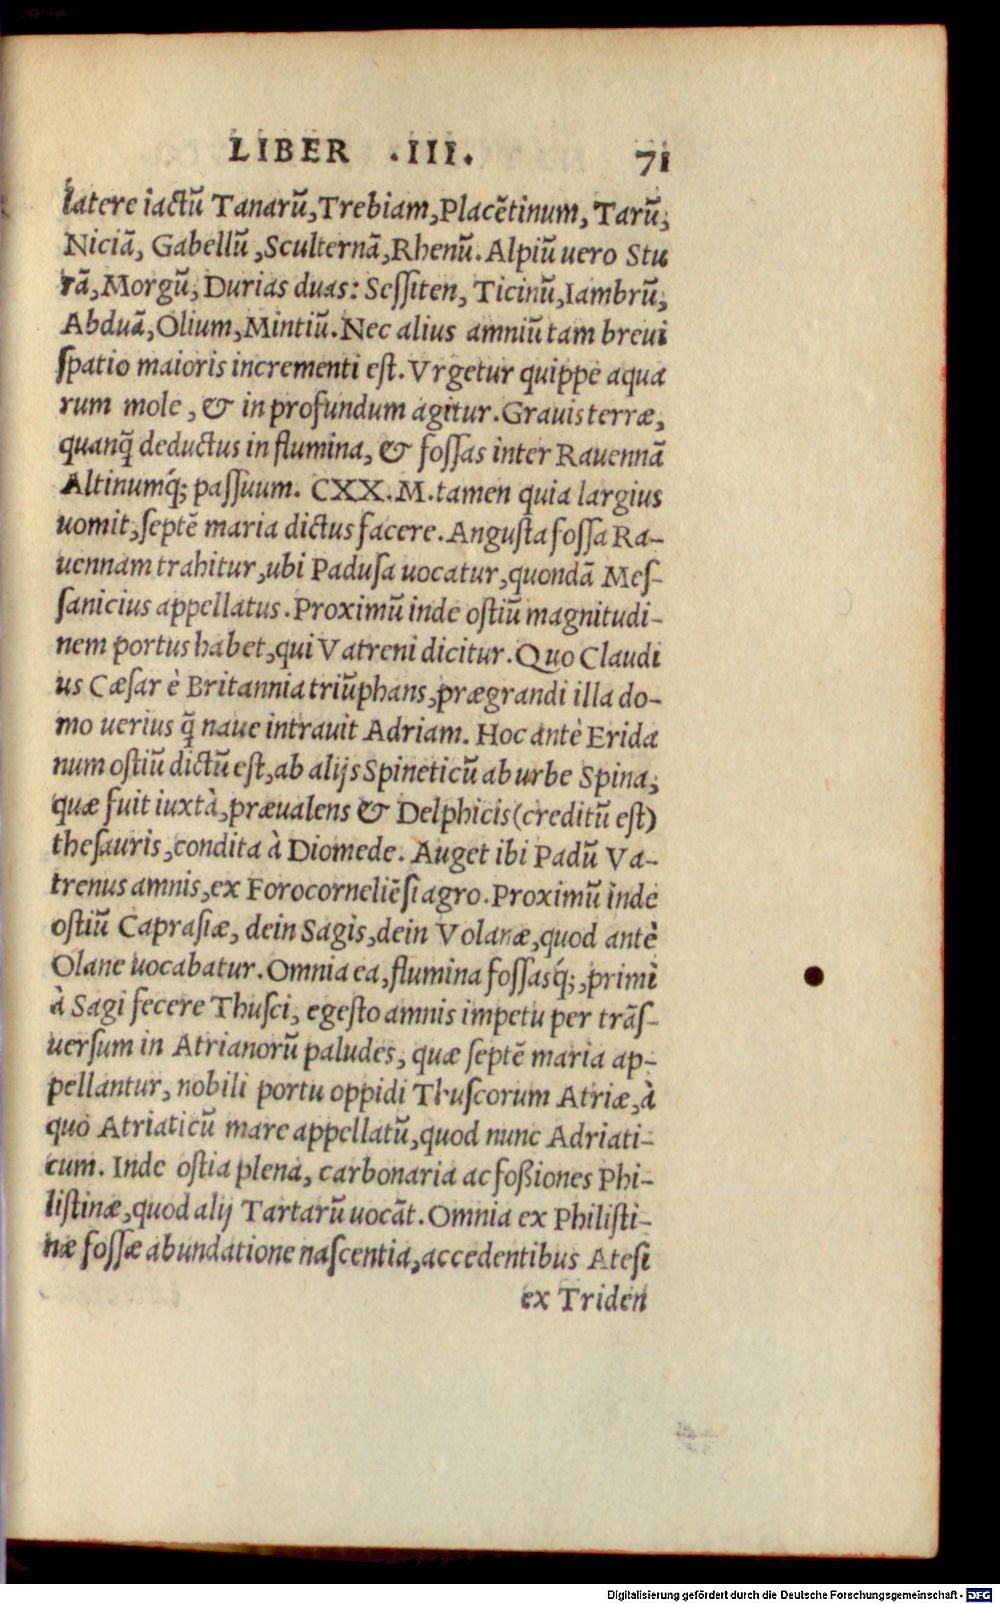 LIBER .III. 71
latere iactũ Tanarũ, Trebiam, Placẽtinum, Tarũ,
Niciã, Gabellũ, Scultennã, Rhenũ. Alpiũ uero Stu
rã, Morgũ, Durias duas: Seſſiten, Ticinũ, Iambrũ,
Abduã, Olium, Mintiũ. Nec alius amniũ tam breui
ſpatio maioris incrementi eſt. Vrgetur quippe aqua
rum mole, & in profundum agitur. Grauis terræ,
quanq̃ deductus in flumina, & foſſas inter Rauennã
Altinumq́; paſſuum. CXX. M. tamen quia largius
uomit, ſeptẽ maria dictus facere. Anguſta foſſa Ra-
uennam trahitur, ubi Paduſa uocatur, quondã Meſ-
ſanicius appellatus. Proximũ inde oſtiũ magnitudi-
nem portus habet, qui Vatreni dicitur. Quo Claudi
us Cæſar è Britannia triũphans, prægrandi illa do-
mo uerius q̃ naue intrauit Adriam. Hoc antè Erida
num oſtiũ dictũ eſt, ab alijs Spineticũ ab urbe Spina,
quæ fuit iuxtà, præualens & Delphicis (creditũ eſt)
theſauris, condita à Diomede. Auget ibi Padũ Va-
trenus amnis, ex Forocorneliẽſi agro. Proximũ inde
oſtiũ Capraſiæ, dein Sagis, dein Volanæ, quod antè
Olane uocabatur. Omnia ea, flumina foſſasq́;, primi
à Sagi fecere Thuſci, egeſto amnis impetu per trãſ-
uerſum in Atrianorũ paludes, quæ ſeptẽ maria ap-
pellantur, nobili portu oppidi Thuſcorum Atriæ, à
quo Atriaticũ mare appellatũ, quod nunc Adriati-
cum. Inde oſtia plena, carbonaria ac foßiones Phi-
liſtinæ, quod alij Tartarũ uocãt. Omnia ex Philiſti-
næ foſſæ abundatione naſcentia, accedentibus Ateſi
ex Triden
Digitalisierung gefördert durch die Deutsche Forschungsgemeinschaft - DFG